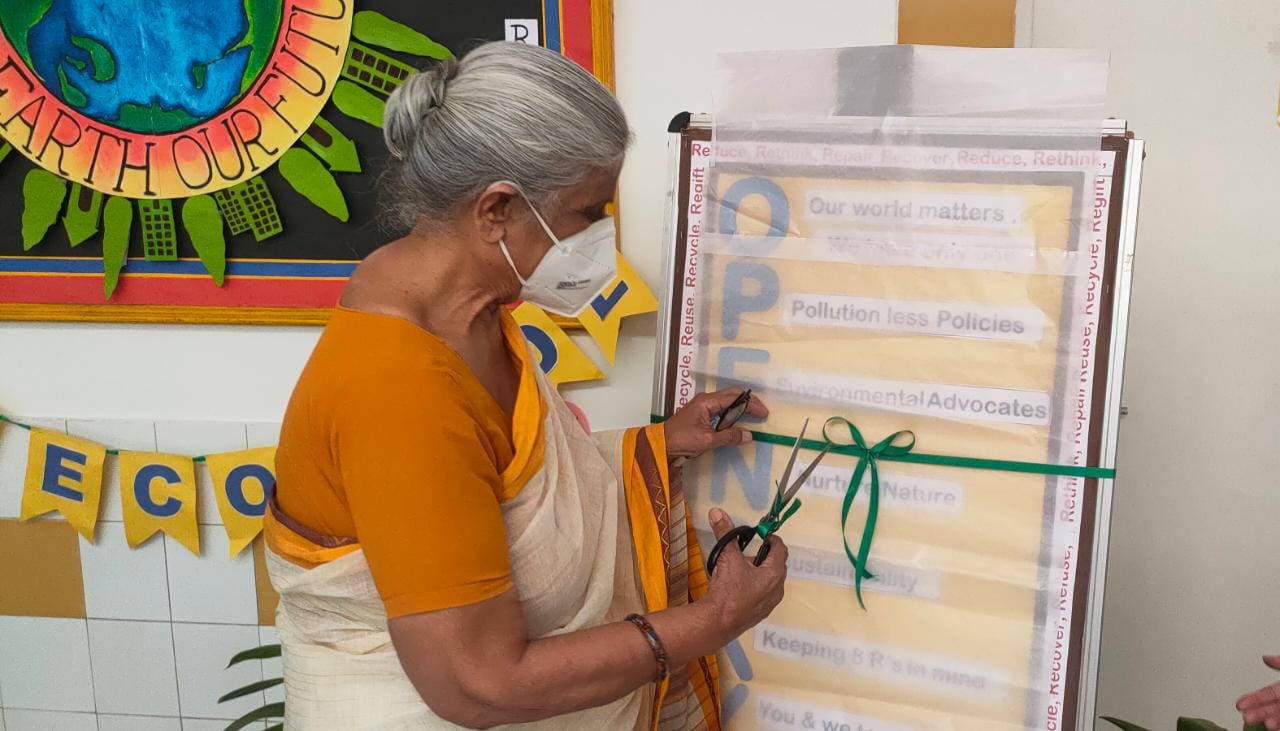 R
EARTH OUR FUTU
ECO
O L
Reduce, Rethink, Repair, Recover, Reduce, Rethink,
Recycle, Reuse, Recycle, Regift
cle, Recover, Refuse, Rethink, Repair, Reuse, Recycle, Regift
O
Our world matters .
We have only one
P
Pollution less Policies
E
Environmental Advocates
N
Nurture Nature
Sustainability
Keeping 8 R's in mind
You & we